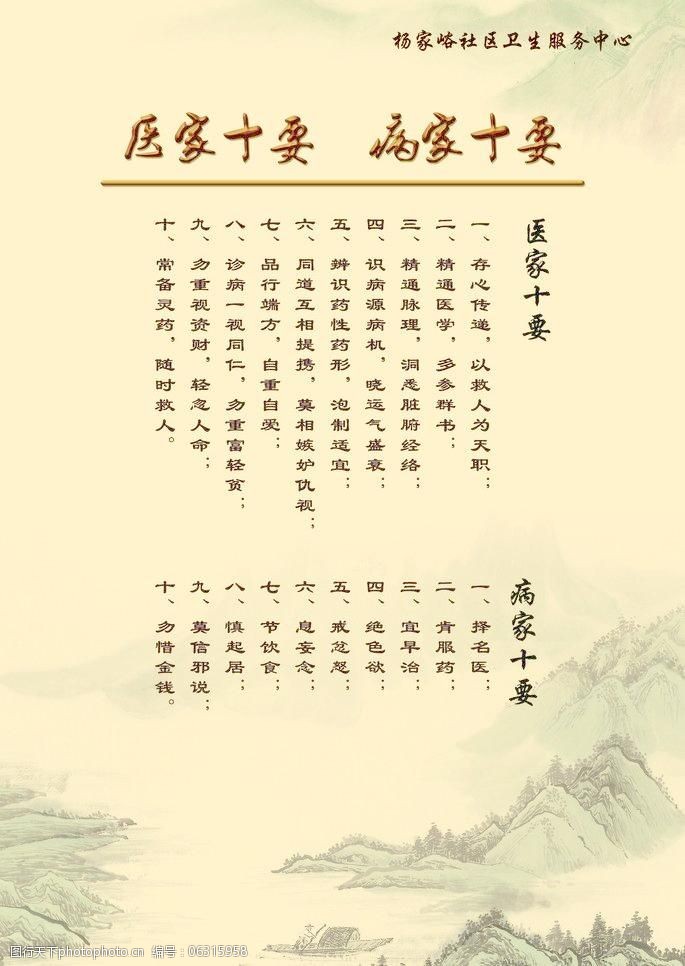 杨家峪社区卫生服务中心
医家十要 病家十要
医家十要
一、存心传递，以救人为天职；
二、精通医学，多参群书；
三、精通脉理，洞悉脏腑经络；
四、识病源病机，晓运气盛衰；
五、辨识药性药形，泡制适宜；
六、同道互相提携，莫相嫉妒仇视；
七、品行端方，自重自爱；
八、诊病一视同仁，勿重富轻贫；
九、勿重视资财，轻忽人命；
十、常备灵药，随时救人。
病家十要
一、择名医；
二、肯服药；
三、宜早治；
四、绝色欲；
五、戒忿怒；
六、息妄念；
七、节饮食；
八、慎起居；
九、莫信邪说；
十、勿惜金钱。
图行天下photophoto.cn 编号：06315958